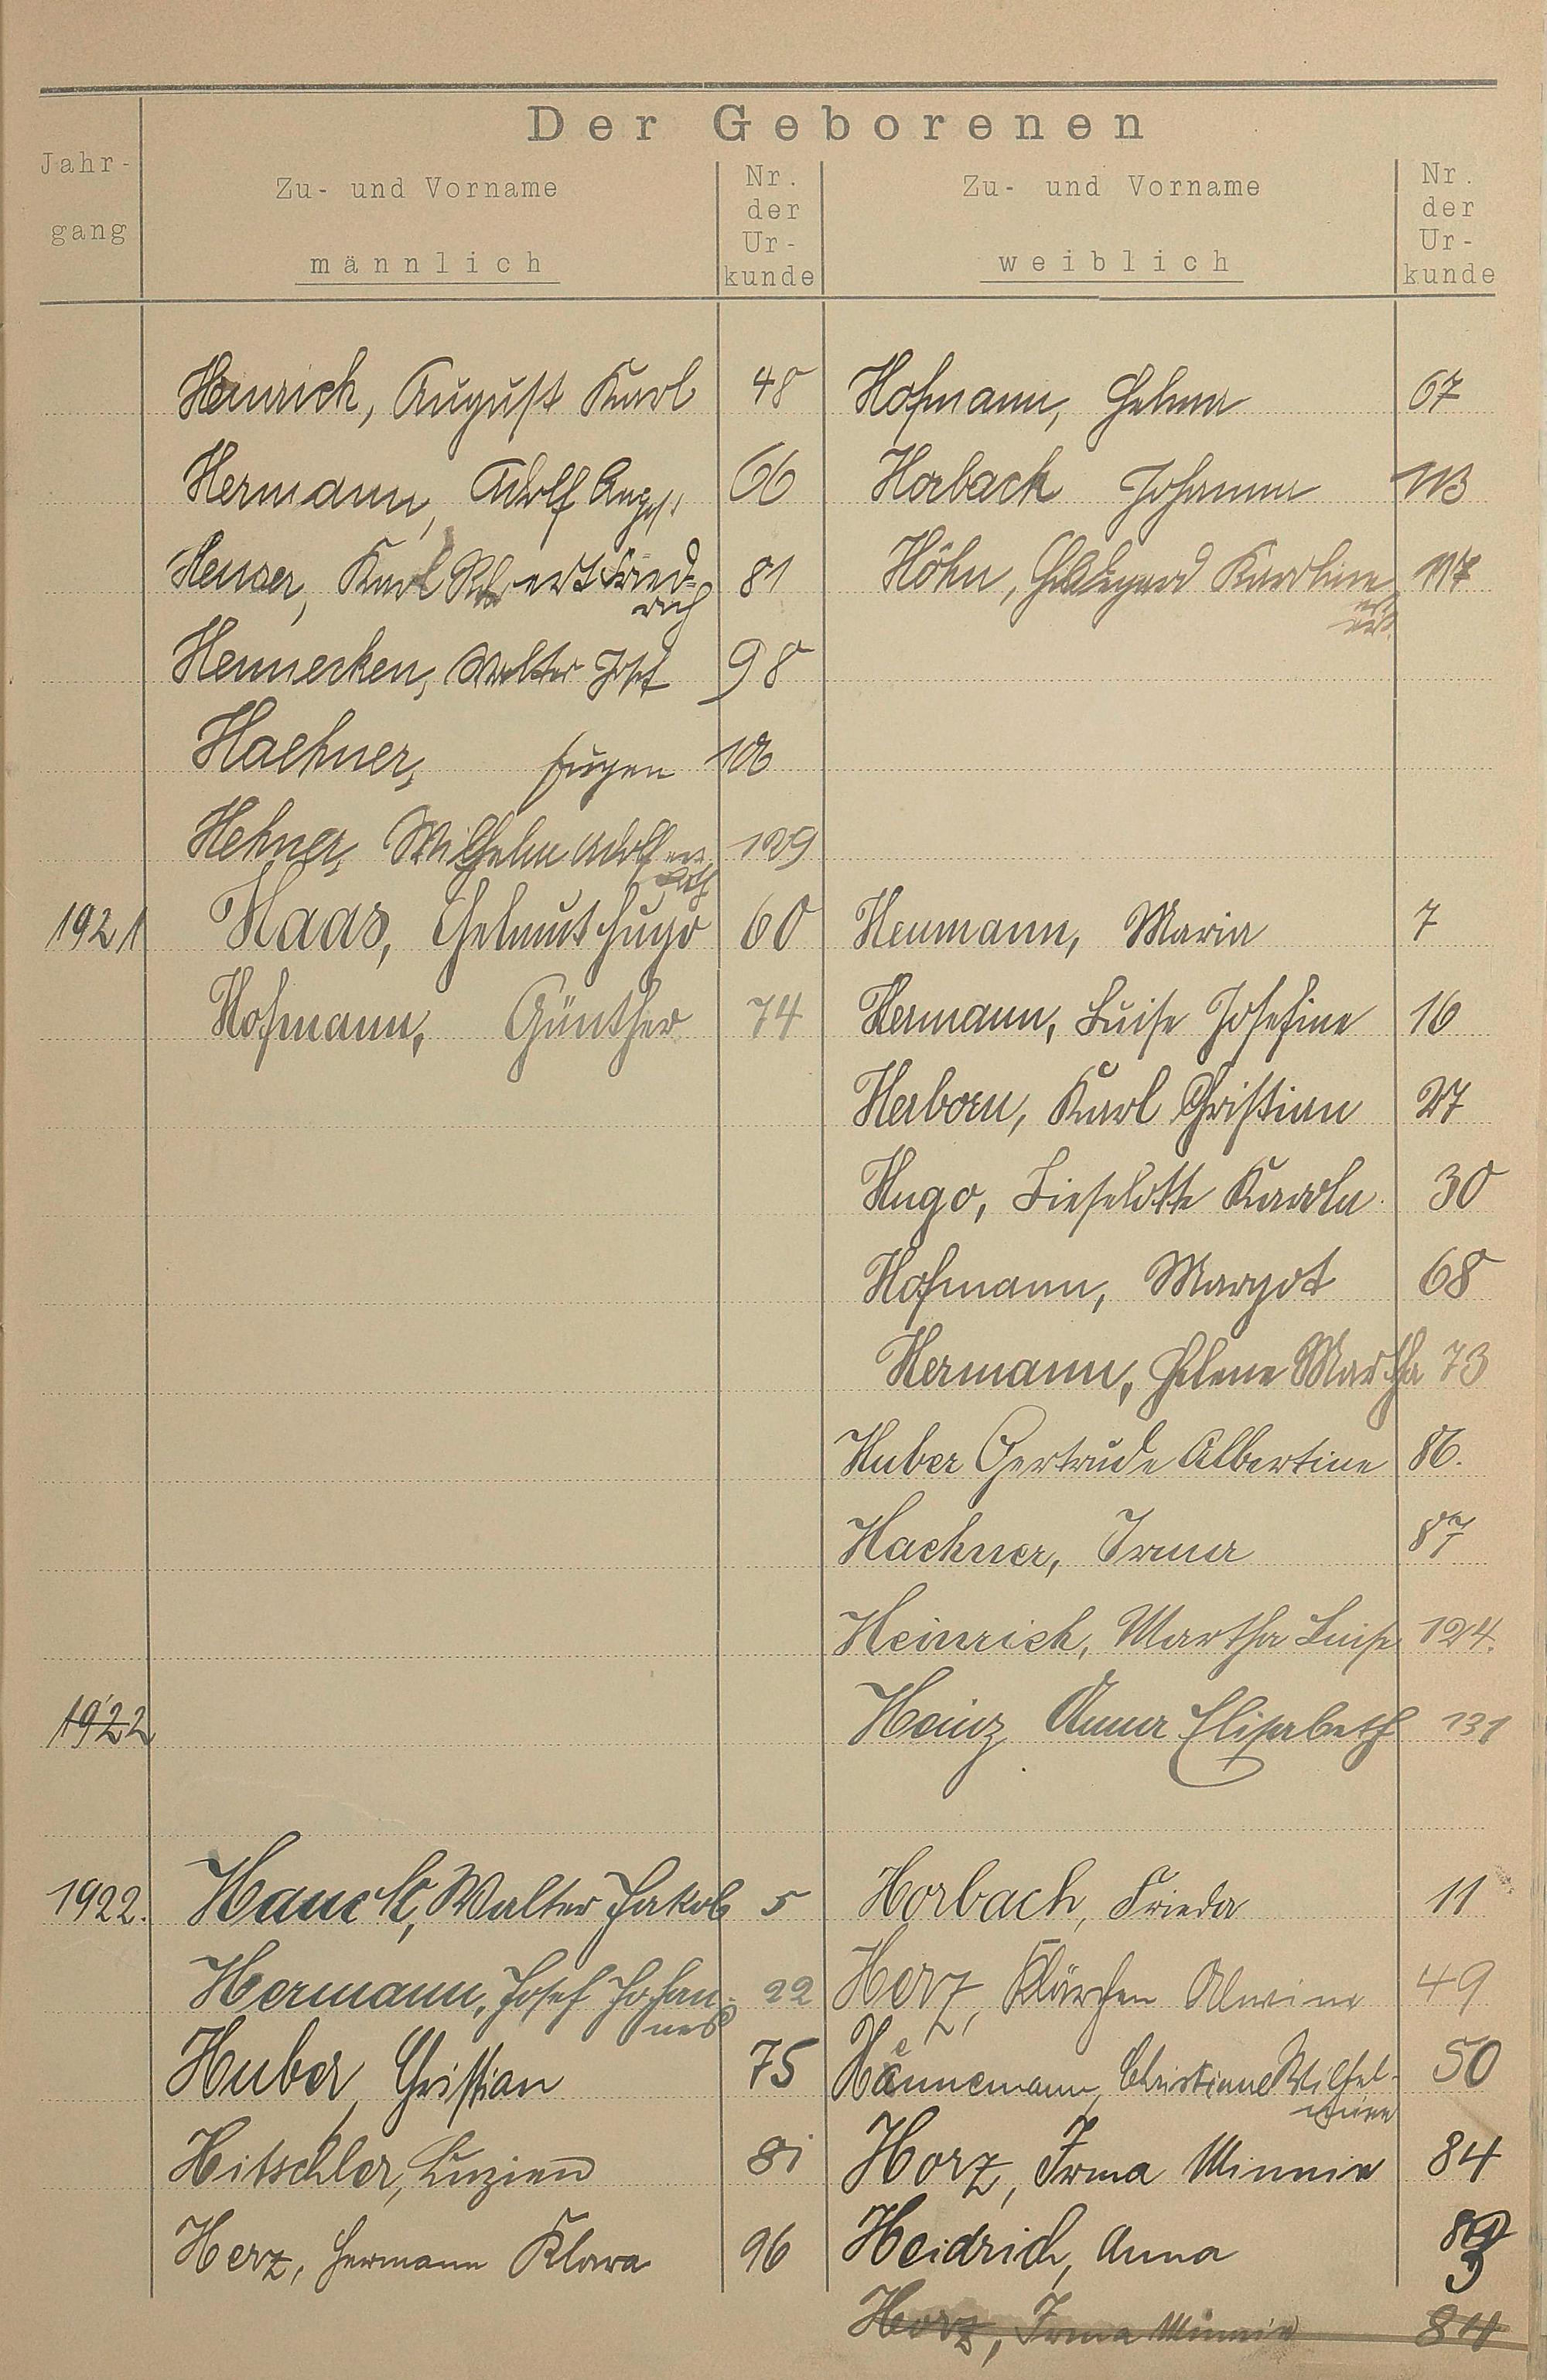 Der Geborenen
Jahr-
gang
Zu- und Vorname
männlich
Nr.
der
Ur-
kunde
Zu- und Vorname
weiblich
Nr.
der
Ur-
kunde
Heinrich, August Karl 48 Hofmann, Helma 67
Hermann, Adolf August 66 Horbach Johanna 113
Heuser, Karl Robert Fried- 81 Höhn, Hildegard Karoline 117
rich
Hennecken, Walter Josef 98
Haehner, Eugen 106
Hehner, Wilhelm Adolf 129
1921 Haas, Helmut Hugo 60 Heumann, Maria 7
Hofmann, Günther 74 Hermann, Luise Josefine 16
Herborn, Karl Christian 27
Hugo, Lieselotte Karola 30
Hofmann, Margot 68
Hermann, Helene Martha 73
Huber Gertrude Albertine 86.
Haehner, Irma 87
Heinrich, Martha Luise 124.
1922 Heinz Anna Elisabeth 131
1922. Hauck, Walter Jakob 5 Horbach, Frieda 11
Hermann, Josef Johan- 22 Herz, Klärchen Alwine 49
nes
Huber, Christian 75 Hännemann, Christiane Wilhel- 50
mine
Hitschler, Luzian 81 Horz, Irma Minnie 84
Herz, Hermann Klara 96 Heidrich, Anna
Horz, Irma Minnie 84